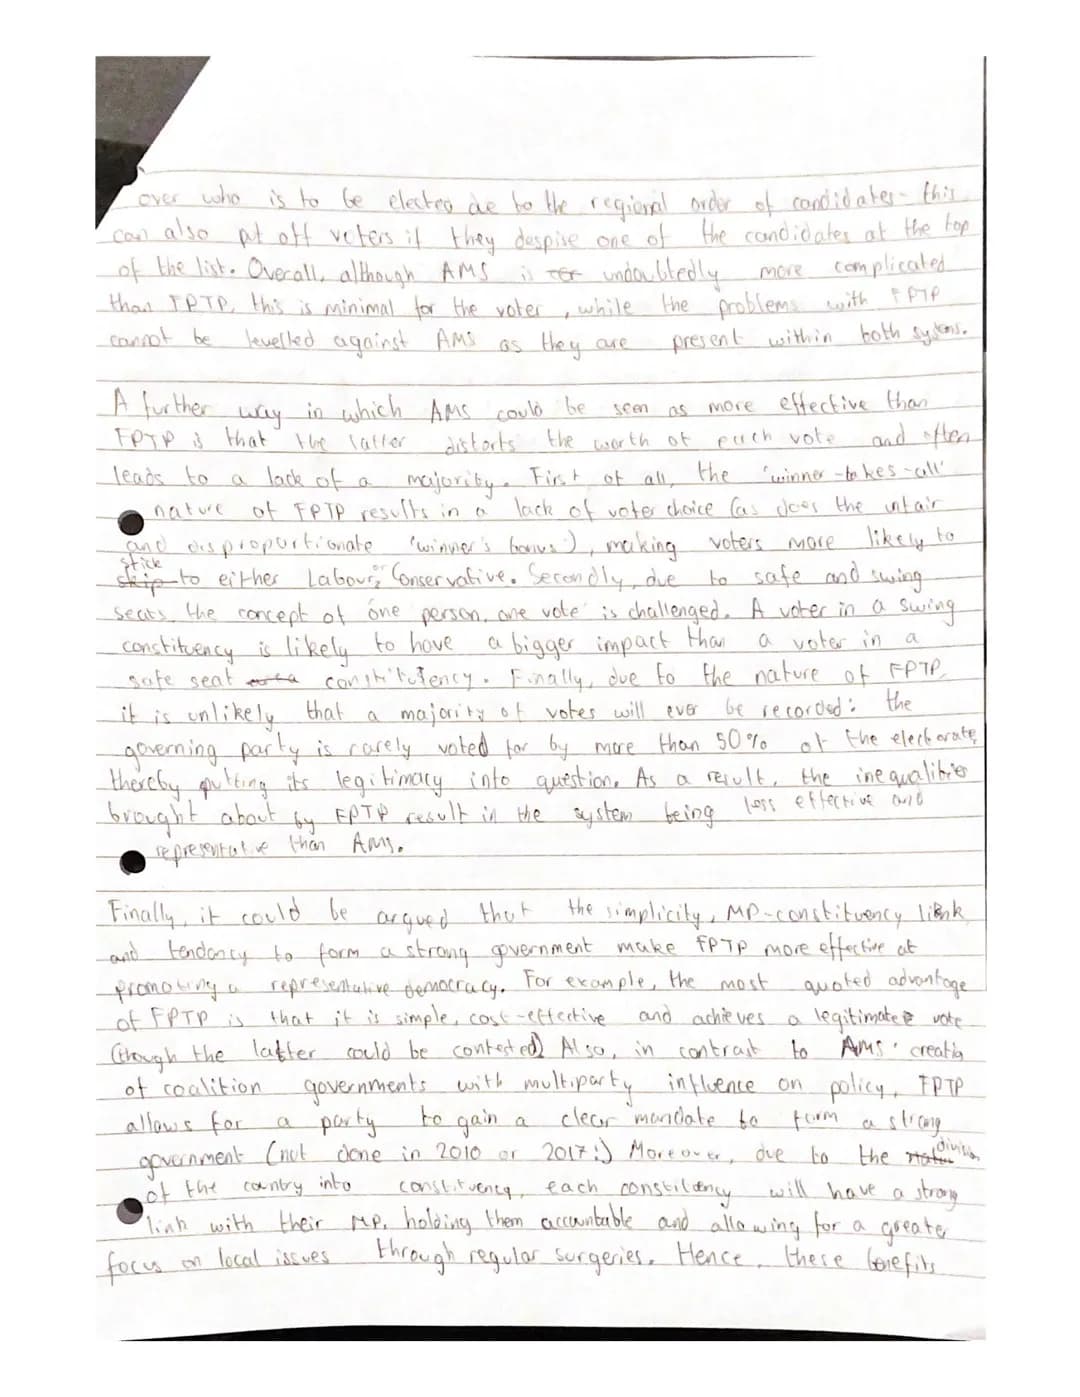 over who is to be elected due to the regional order of candidates - this
can also put off voters if they despise one of the candidates at the top
of the list. Overall, although AMS is undoubtedly more complicated
than FPTP, this is minimal for the voter, while the problems with FPTP
cannot be levelled against AMS as they are present within both systems.
A further way in which AMS could be seen as more effective than
FPTP is that the latter distorts the worth of each vote and often
leads to a lack of a majority. First of all, the 'winner-takes-all'
nature of FPTP results in a lack of voter choice (as does the unfair
and disproportionate 'winner's bonus'), making voters more likely to
stick to either Labour or Conservative. Secondly, due to safe and swing
seats, the concept of 'one person, one vote' is challenged. A voter in a swing
constituency is likely to have a bigger impact than a voter in a
safe seat constituency. Finally, due to the nature of FPTP,
it is unlikely that a majority of votes will ever be recorded: the
governing party is rarely voted for by more than 50% of the electorate,
thereby putting its legitimacy into question. As a result, the inequalities
brought about by FPTP result in the system being less effective and
representative than AMS.
Finally, it could be argued that the simplicity, MP-constituency link
and tendancy to form a strong government make FPTP more effective at
promoting a representative democracy. For example, the most quoted advantage
of FPTP is that it is simple, cost-effective and achieves a legitimate vote
(though the latter could be contested) Also, in contrast to AMS' creation
of coalition governments with multiparty influence on policy, FPTP
allows for a party to gain a clear mandate to form a strong
government (not done in 2010 or 2017!) Moreover, due to the division
of the country into constituency, each constituency will have a strong
link with their MP, holding them accountable and allowing for a greater
focus on local issues through regular surgeries. Hence, these benefits